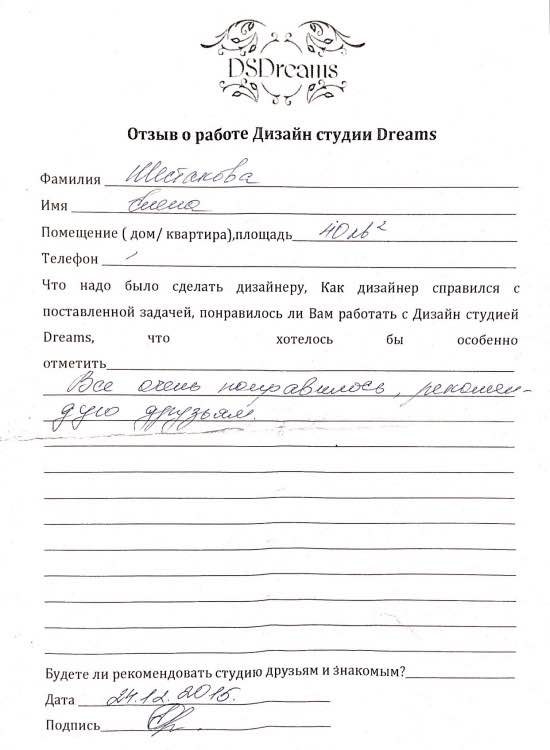 DSDreams
Отзыв о работе Дизайн студии Dreams
Фамилия Шестакова
Имя Елена
Помещение ( дом/ квартира),площадь 40 м²
Телефон
Что надо было сделать дизайнеру, Как дизайнер справился с
поставленной задачей, понравилось ли Вам работать с Дизайн студией
Dreams, что хотелось бы особенно
отметить
Все очень понравилось, рекомен-
дую друзьям.
Будете ли рекомендовать студию друзьям и знакомым?
Дата 24.12.2015.
Подпись